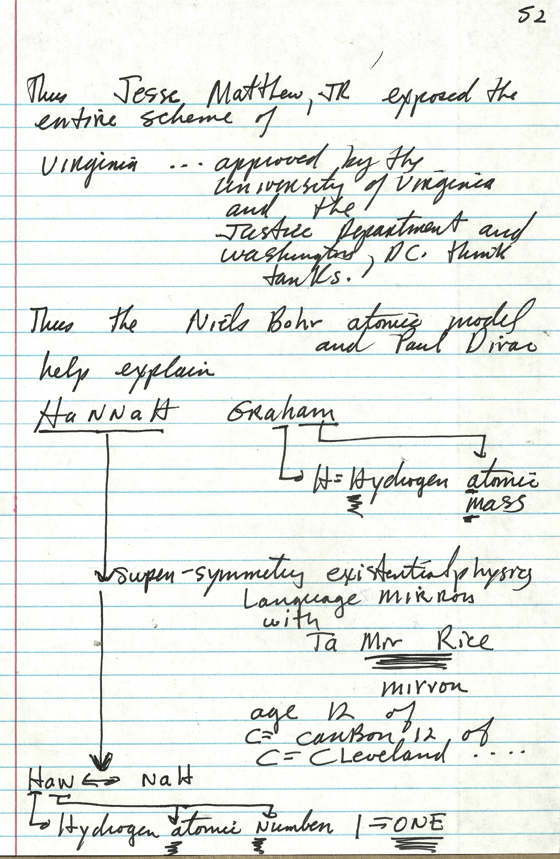 52
Thus Jesse Matthew, JR exposed the
entire scheme of
Virginia ... approved by the
University of Virginia
and the
Justice Department and
Washington, DC. think
tanks.
Thus the Niels Bohr atomic model
and Paul Dirac
help explain
HaNNaH Graham
H = Hydrogen atomic
mass
super-symmetry existential physics
Language mirror
with
Ta Mir Rice
mirror
age 12 of
C = carbon 12 of
C = Cleveland ....
Han ↔ NaH
Hydrogen atomic Number 1 = ONE